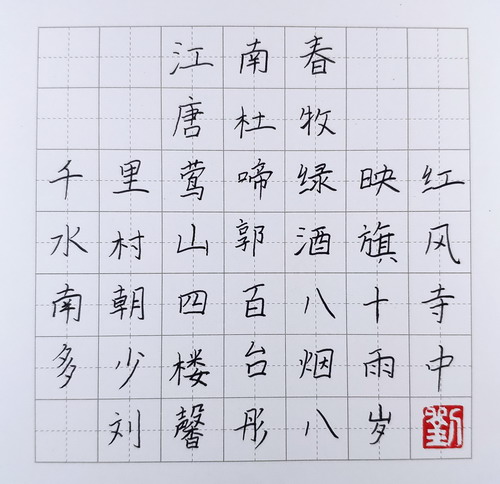 江南春
唐杜牧
千里莺啼绿映红
水村山郭酒旗风
南朝四百八十寺
多少楼台烟雨中
刘馨彤八岁
劉